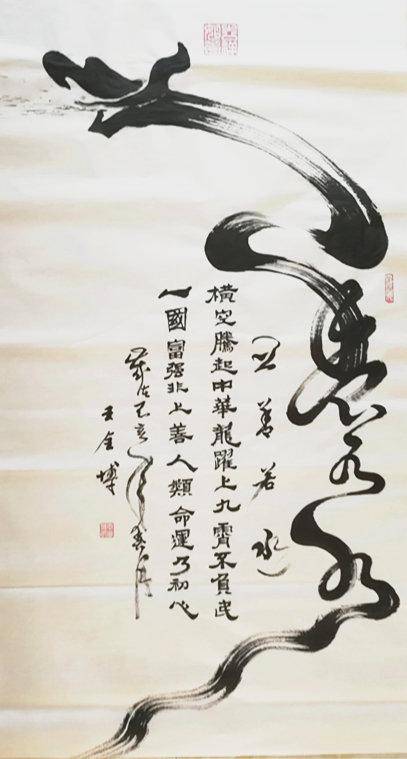 上善若水
（上善若水）
橫空騰起中華龍躍上九霄不負民
一國富强非上善人類命運乃初心
歲次己亥